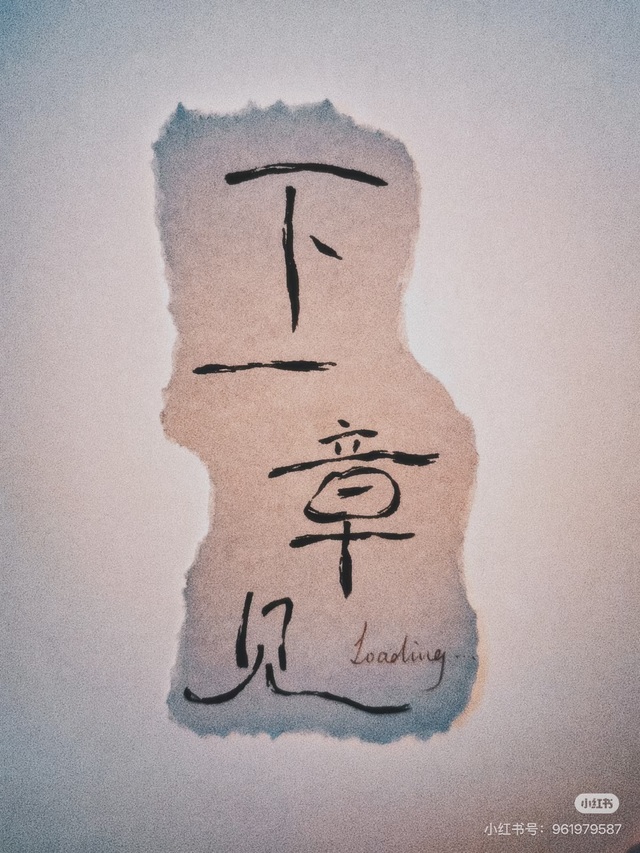 下
一
章
见
Loading...
小红书
小红书号：961979587